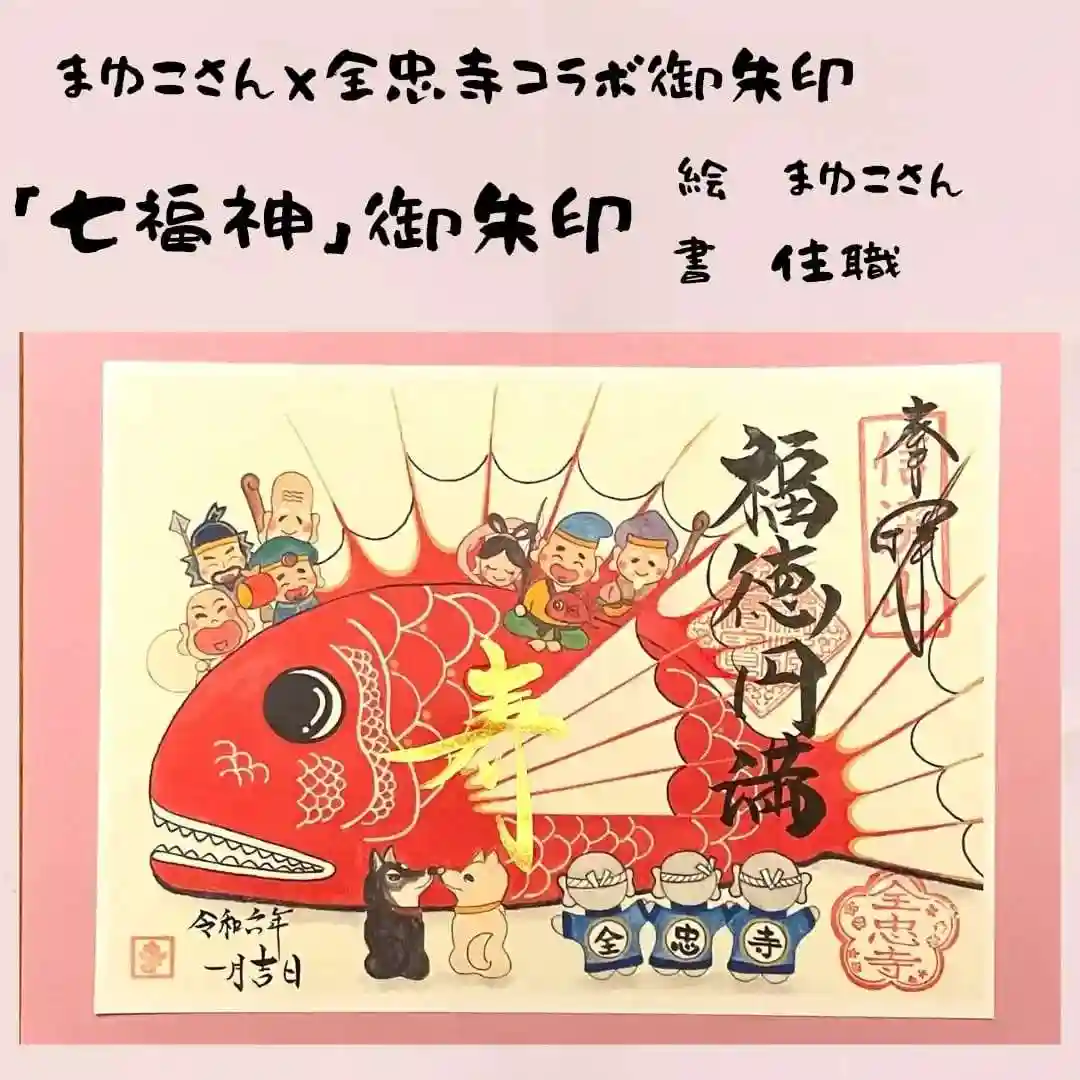 まゆこさん×全忠寺コラボ御朱印
「七福神」御朱印
絵 まゆこさん
書 住職
奉拝
福徳円満
寿
令和六年
一月吉日
全
忠
寺
全忠寺